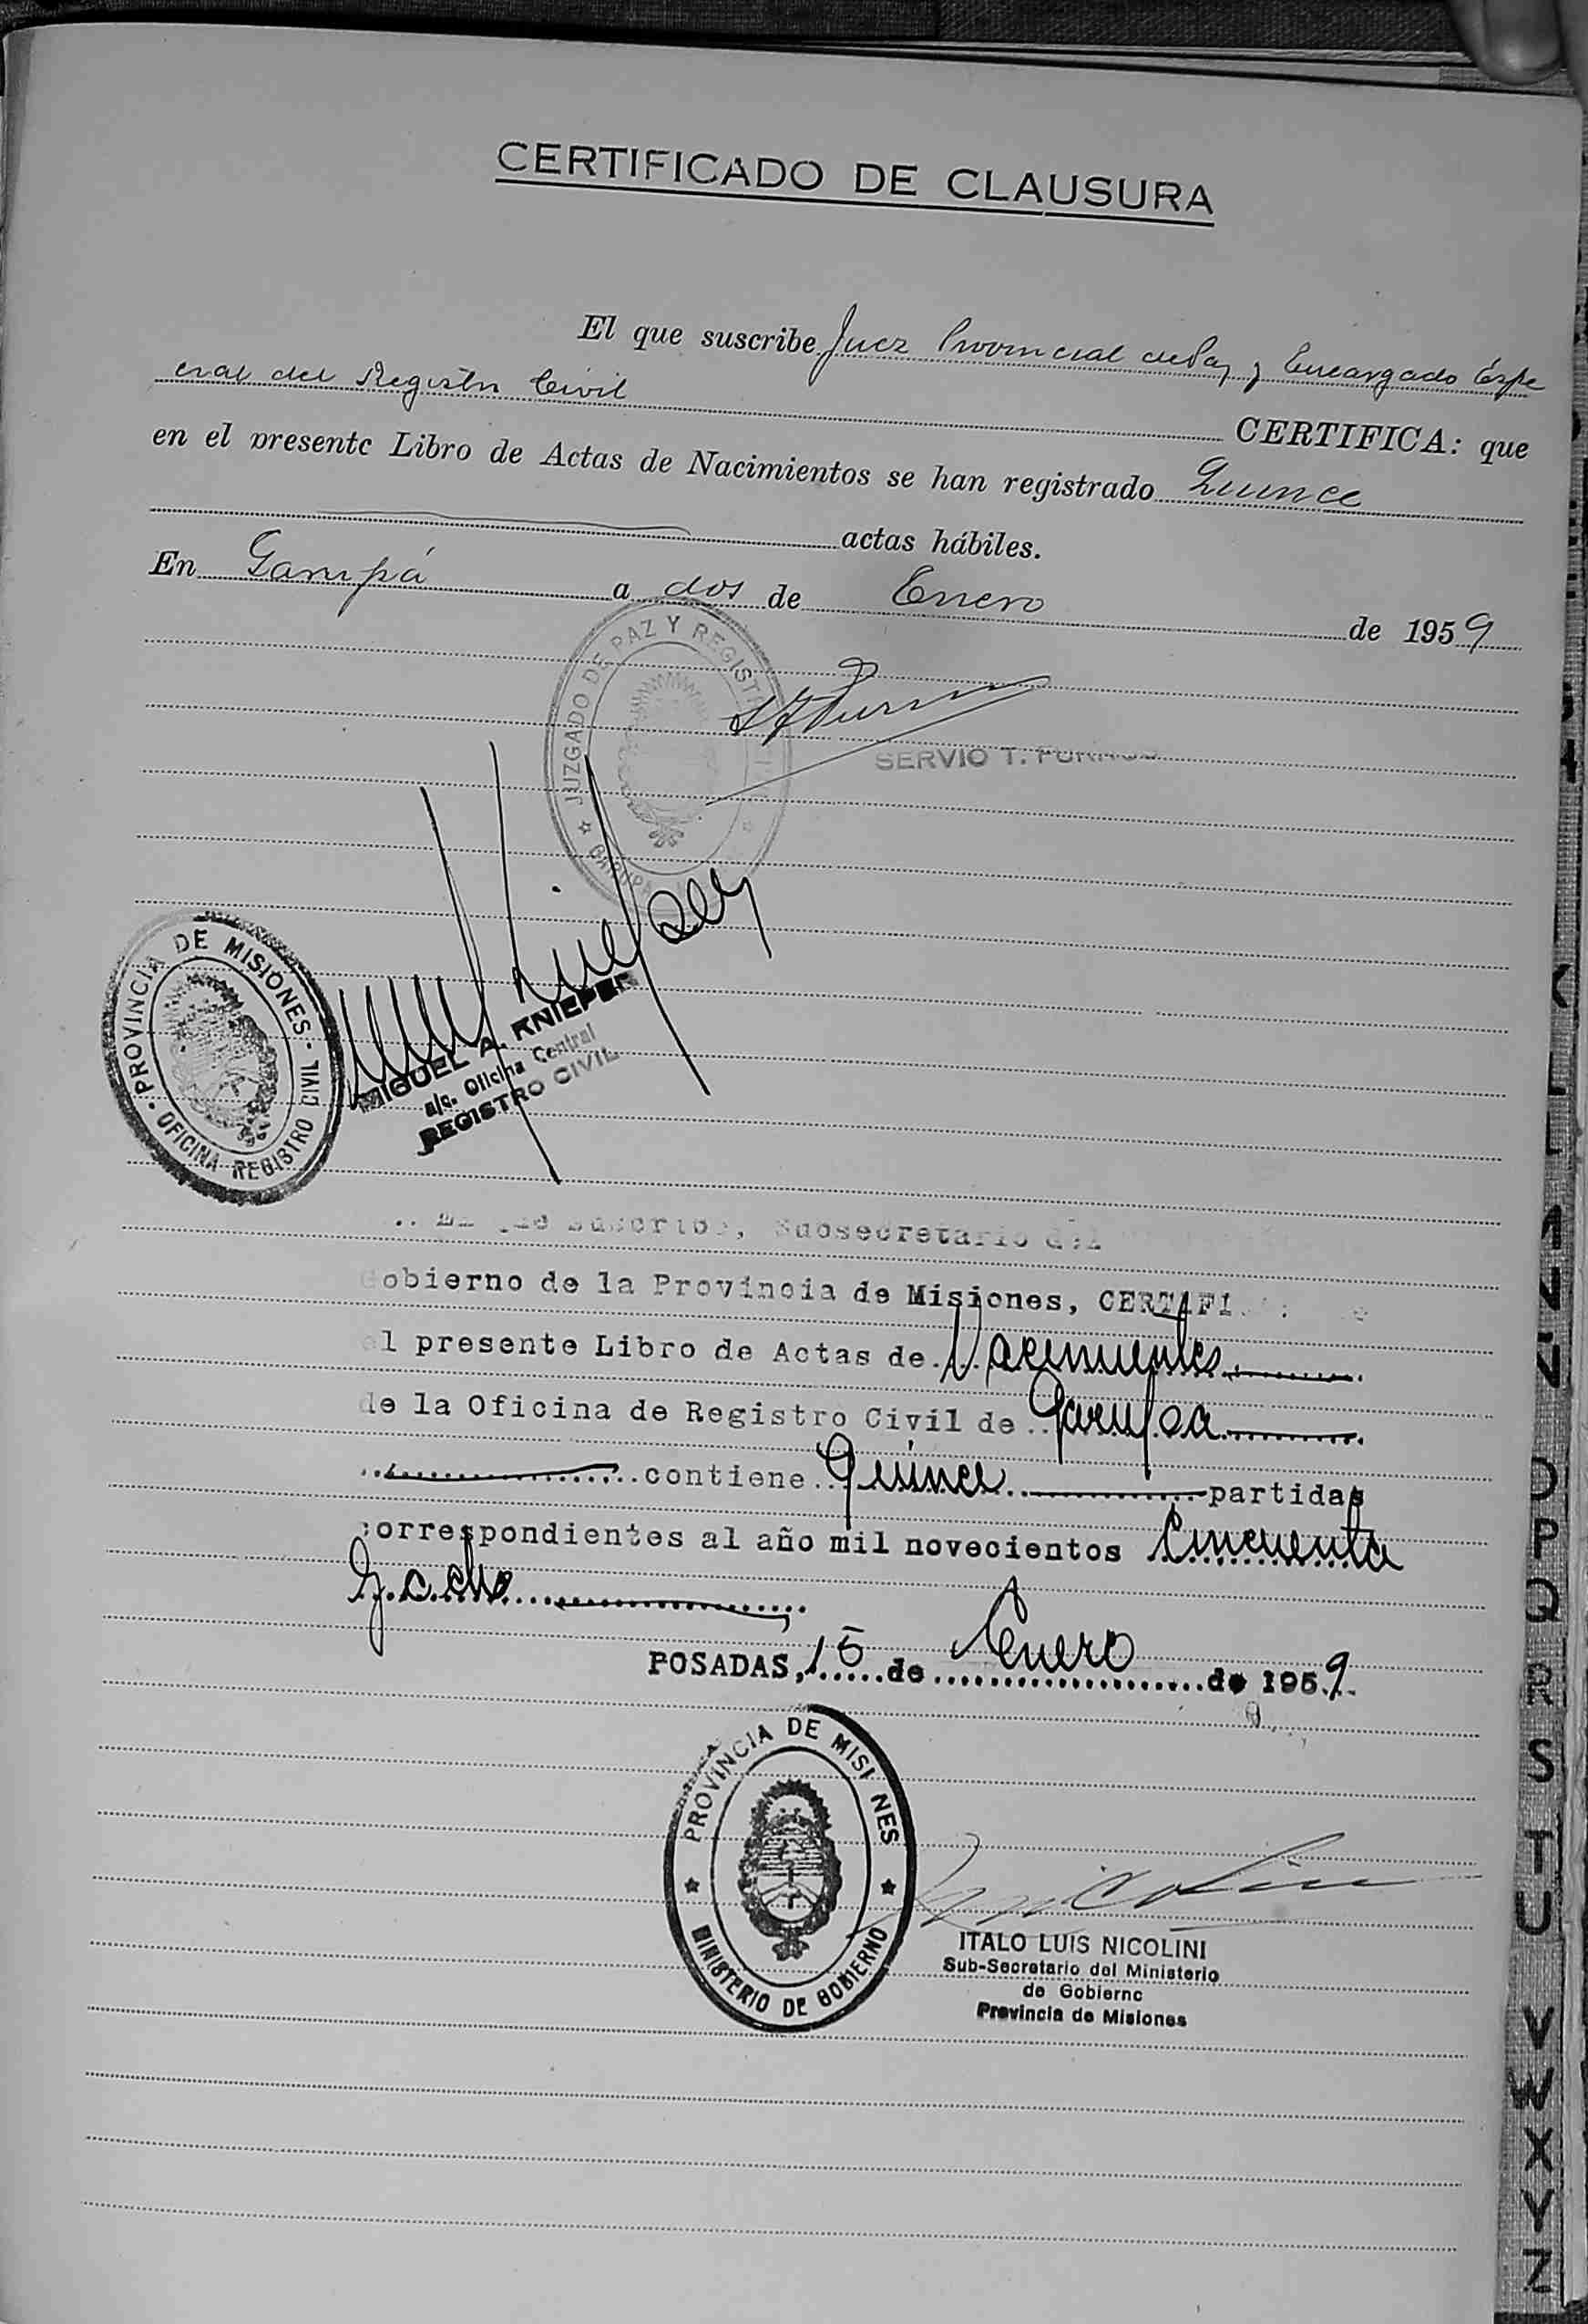 CERTIFICADO DE CLAUSURA
El que suscribe Juez Provincial de Paz y Encargado Espe
cial del Registro Civil
CERTIFICA: que
en el presente Libro de Actas de Nacimientos se han registrado Quince
actas hábiles.
En Garupá a dos de Enero de 1959
JUZGADO DE PAZ Y REGISTRO CIVIL
GARUPA
SERVIO T.
PROVINCIA DE MISIONES
OFICINA REGISTRO CIVIL
MIGUEL A. KNIEPER
a/c. Oficina Central
REGISTRO CIVIL
El que suscribe, Subsecretario del
Gobierno de la Provincia de Misiones, CERTIFI
el presente Libro de Actas de Nacimientos
de la Oficina de Registro Civil de Garupa
contiene Quince partidas
correspondientes al año mil novecientos Cincuenta
y ocho
POSADAS, 15 de Enero de 1959.
PROVINCIA DE MISIONES
MINISTERIO DE GOBIERNO
ITALO LUIS NICOLINI
Sub-Secretario del Ministerio
de Gobierno
Provincia de Misiones
K
L
M
N
Ñ
O
P
Q
R
S
T
U
V
W
X
Y
Z